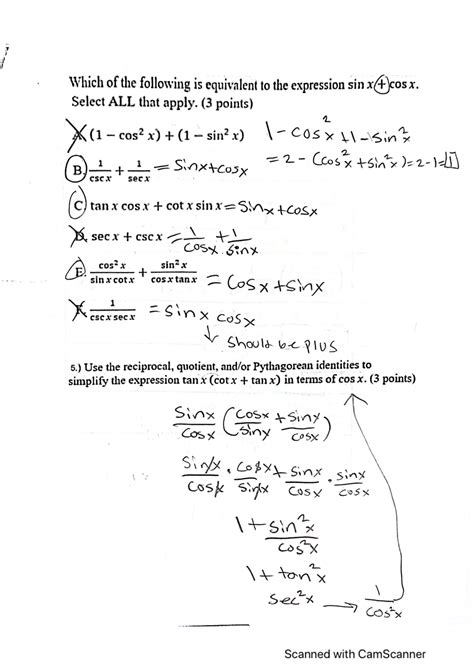 Which of the following is equivalent to the expression sin x + cos x.
Select ALL that apply. (3 points)
A. (1 − cos² x) + (1 − sin² x) 1 - cos²x + 1 - sin²x
= 2 - (cos²x + sin²x) = 2-1 = 1
B. 1/csc x + 1/sec x = sinx + cosx
C. tan x cos x + cot x sin x = sinx + cosx
D. sec x + csc x = 1/cosx + 1/sinx
E. cos² x/sin x cot x + sin² x/cos x tan x = cosx + sinx
F. 1/csc x sec x = sinx cosx
↓ should be plus
5.) Use the reciprocal, quotient, and/or Pythagorean identities to
simplify the expression tan x (cot x + tan x) in terms of cos x. (3 points)
sinx/cosx (cosx/sinx + sinx/cosx)
sinx/cosx · cosx/sinx + sinx/cosx · sinx/cosx
1 + sin²x/cos²x
1 + tan²x
sec²x → 1/cos²x
Scanned with CamScanner